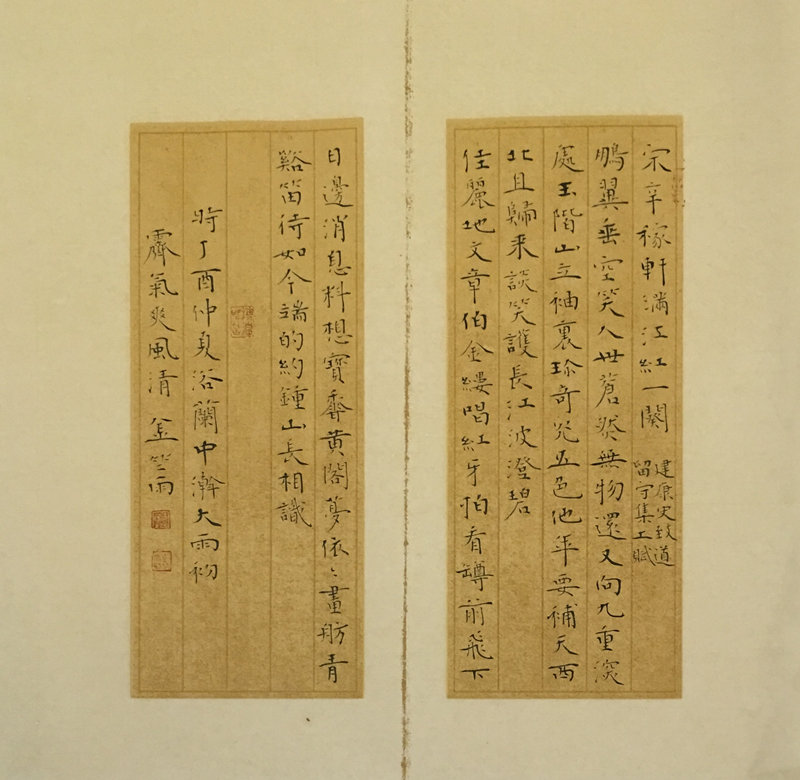 宋辛稼軒滿江紅一闋
建康史致道
留守集上賦
鵬翼垂空笑人世蒼然無物還又向九重深
處玉階山立袖裏珍奇光五色他年要補天西
北且歸來談笑護長江波澄碧
佳麗地文章伯金縷唱紅牙拍看尊前飛下
日邊消息料想寶香黃閣夢依〻畫舫青
谿笛待如今端的約鍾山長相識
時丁酉仲夏浴蘭中澣大雨初
霽氣爽風清 雨